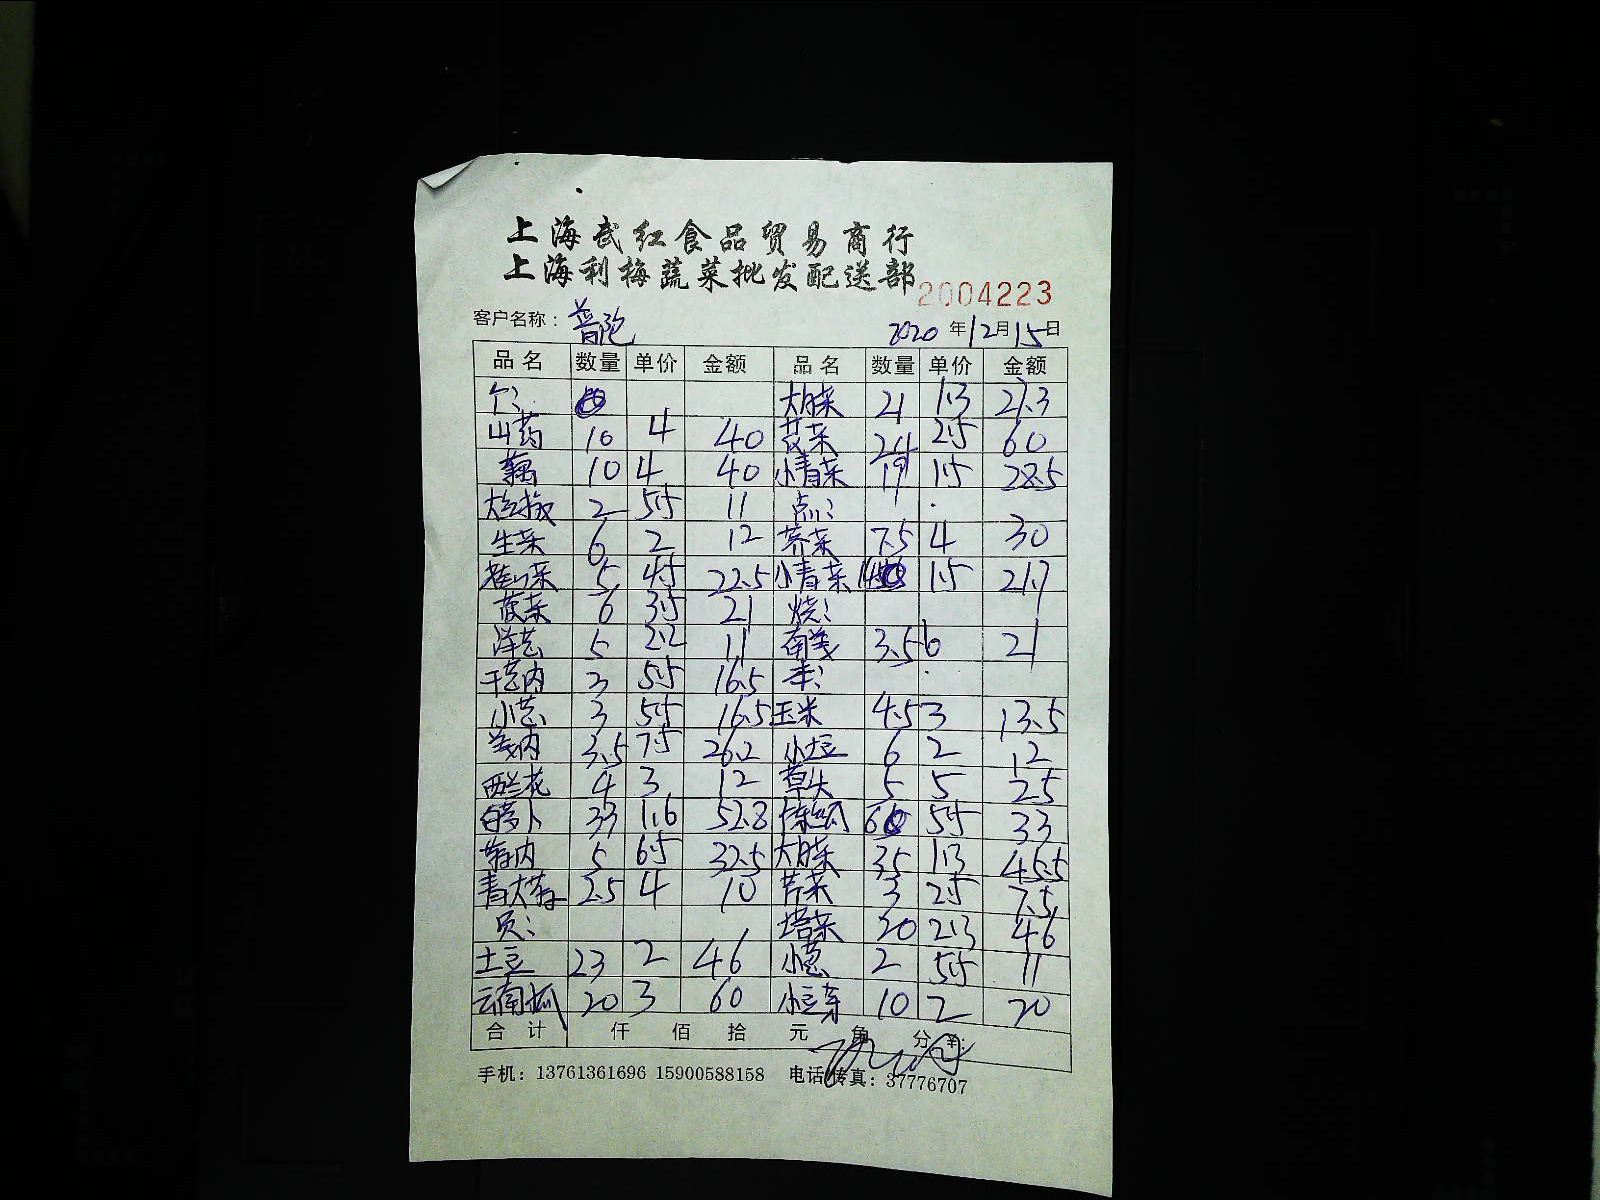 上海武红食品贸易商行
上海利梅蔬菜批发配送部
2004223
客户名称：普陀 2020年12月15日
品名 数量 单价 金额 品名 数量 单价 金额
21 1.3 27.3
山药 10 4 40 24 2.5 60
藕 10 4 40 小青菜 19 1.5 28.5
大红椒 2 5.5 11 点：
生菜 6 2 12 荠菜 7.5 4 30
5 4.5 22.5 小青菜 1.5 21.7
6 3.5 21 烧：
洋芋 5 2.2 11 3.5 6 21
3 5.5 16.5
3 5.5 16.5 玉米 4.5 3 13.5
3.5 7.5 26.2 6 2 12
西兰花 4 3 12 草头 5 5 25
白萝卜 33 1.6 52.8 6 5.5 33
5 6.5 32.5 35 1.3 45.5
2.5 4 10 芹菜 3 2.5 7.5
员： 塔菜 20 2.3 46
土豆 23 2 46 小葱 2 5.5 11
云南瓜 20 3 60 小豆芽 10 2 20
合计 仟 佰 拾 元 角 分 ¥:
手机：13761361696 15900588158 电话/传真：37776707